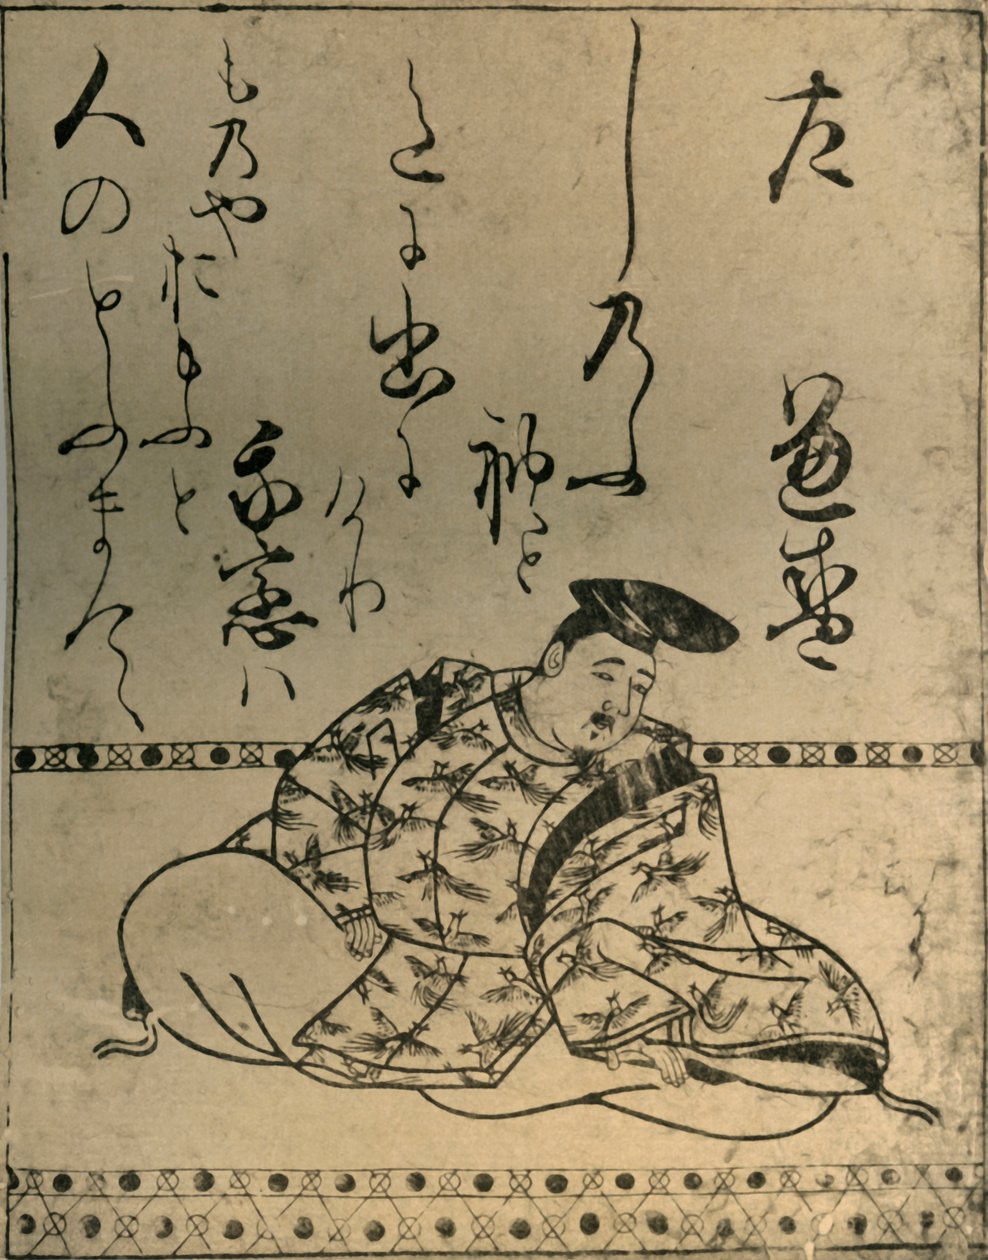 左　兼盛
し乃ふ
れと
色に出に
けり
我恋ハ
も乃や
おもふと
人のとふまて